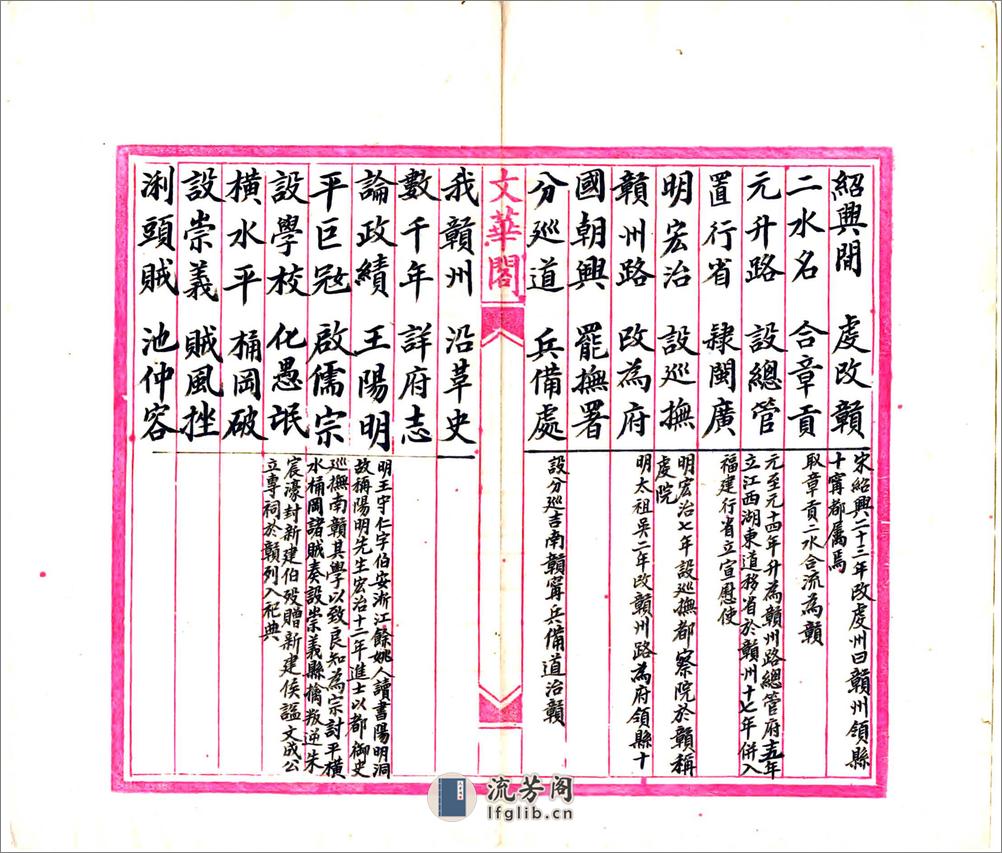 紹興間 虔改贛
宋紹興二十三年改虔州曰贛州領縣
十寧都屬焉
二水名 合章貢
取章貢二水合流為贛
元升路 設總管
元至元十四年升為贛州路總管府十五年
立江西湖東道移省於贛州十七年併入
置行省 隸閩廣
福建行省立宣慰使
明宏治 設巡撫
明宏治七年設巡撫都察院於贛稱
虔院
贛州路 改為府
明太祖吳二年改贛州路為府領縣十
國朝興 罷撫署
分巡道 兵備處
設分巡吉南贛寧兵備道治贛
文華閣
我贛州 沿革史
數千年 詳府志
論政績 王陽明
明王守仁字伯安浙江餘姚人讀書陽明洞
故稱陽明先生宏治十二年進士以都御史
平巨冦 啟儒宗
巡撫南贛其學以致良知為宗討平橫
水桶岡諸賊奏設崇義縣擒叛逆朱
設學校 化愚氓
宸濠封新建伯歿贈新建侯謚文成公
立專祠於贛列入祀典
橫水平 桶岡破
設崇義 賊風挫
浰頭賊 池仲容
流芳阁
lfglib.cn